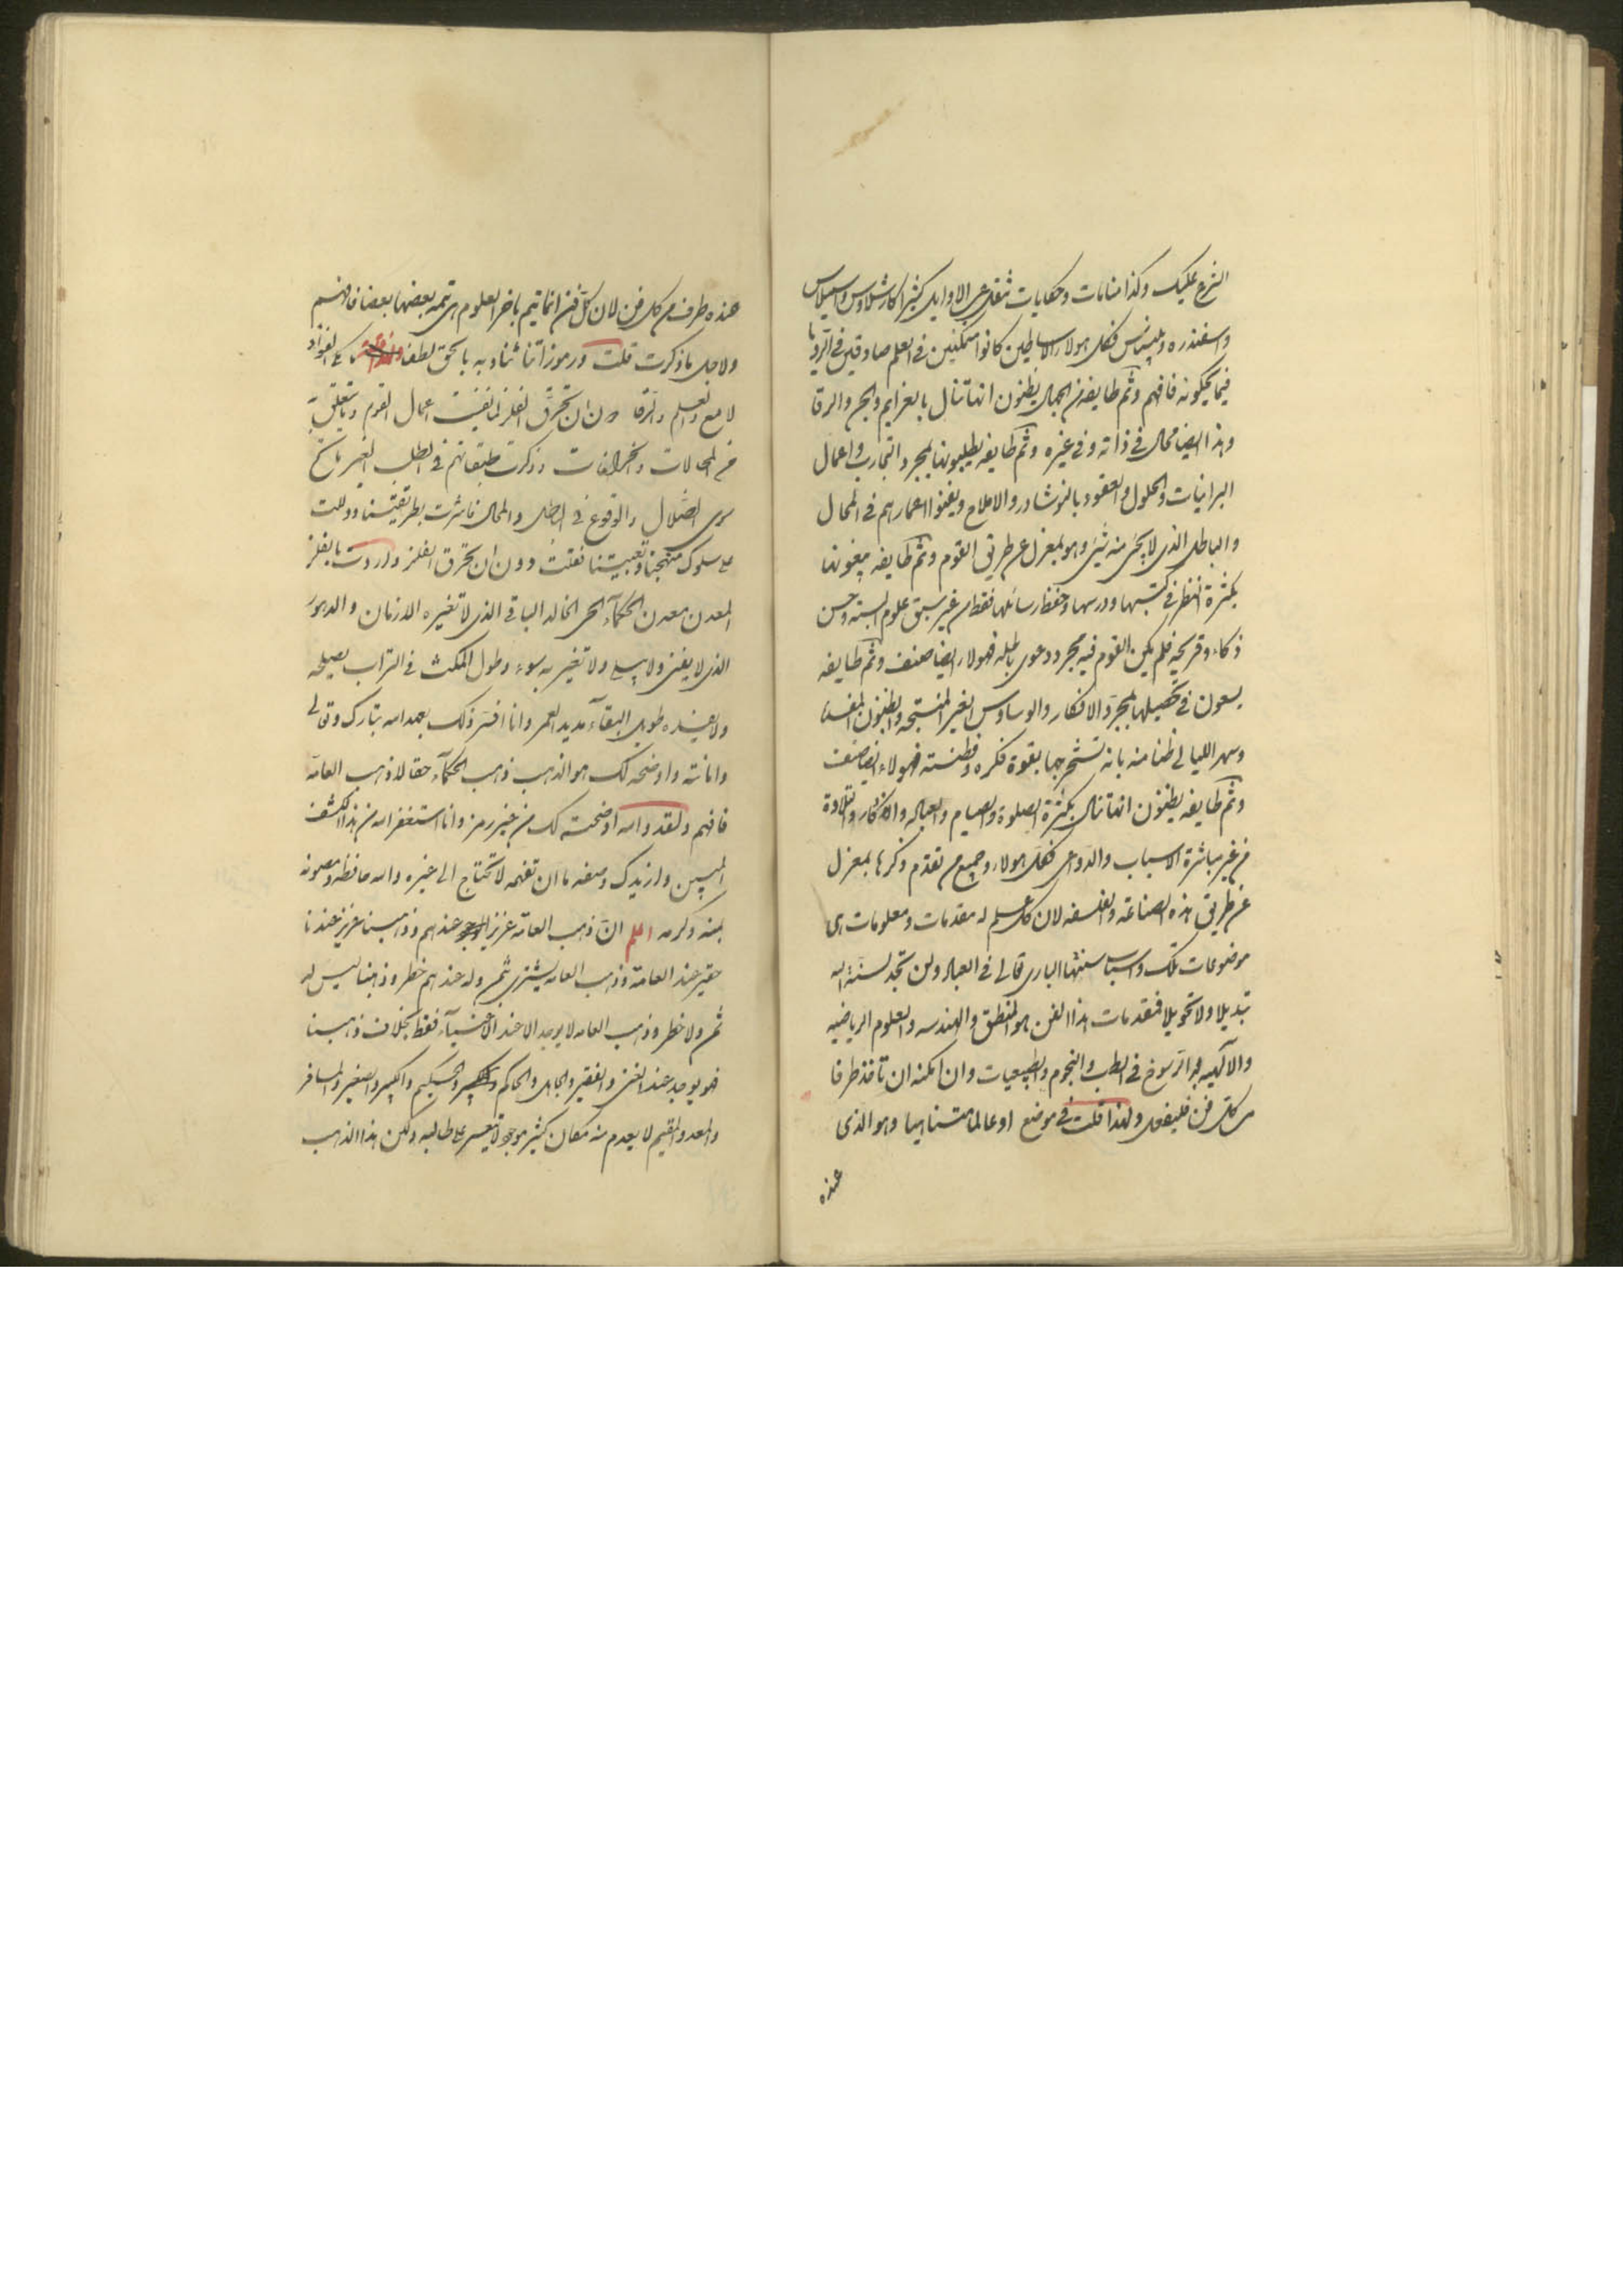 الشرع عليك وكذا منامات وحكايات تنقل عن الاوايل كثيرا كارشلاوس واسيلاس
واسفندره وبلينس فكل هولاء الاساطين كانوا متمكنين في العلم صادقين في الرويا
فيما يحكونه فافهم وثم طايفه من الجهال يظنون انها تنال بالعزايم والبخر والرقا
وهذا ايضا محال في ذاته وفي غيره وثم طايفه يطلبونها بمجرد التجارب واعمال
البرانيات والحلول والعقود بالنوشادر والاملاح ويفنوا اعمارهم في المحال
والباطل الذي لا يجئ منه شئ وهو بمعزل عن طريق القوم وثم طايفه يبغونها
بكثرة النظر في كتبها ودرسها وحفظ رسائلها فقط من غير سبق علوم البته وحسن
ذكاء وقريحة فلم يكن القوم فيه مجرد دعوى باطله فهولاء ايضا صنف وثم طايفه
يسعون في تحصيلها بمجرد الافكار والوساوس الغير المنتجه والظنون المفسده
وسهر الليالي ظنا منه بانه تستخرجها بقوة فكره وفطنته فهولاء ايضا صنف
وثم طايفه يظنون انها تنال بكثرة الصلوة والصيام والعباده والاذكار والتلاوة
من غير مباشرة الاسباب والدواعي فكل هولاء وجميع من تقدم ذكرها بمعزل
عن طريق هذه الصناعة والفلسفه لان كل علم له مقدمات ومعلومات هي
موضوعات تلك واسباب سنتها الباري تعالى في العباد ولن تجد لسنة الله
تبديلا ولا تحويلا فمقدمات هذا الفن هو المنطق والهندسه والعلوم الرياضيه
والالهيه ثم الرسوخ في الطب والنجوم والطبيعيات وان امكنه ان تاخذ طرفا
من كل فن فليفعل ولهذا قلت في موضع او عالما متناهيا وهو الذي
عنده
عنده طرف من كل فن لان كل فن انما يتم باخر العلوم هي تتمه بعضها بعضا فافهم
ولاجل ما ذكرت قلت ورموزاتنا تنادى به بالحق لطفا على الفؤاد
لامع والعلم والرقا دون ان تحرق الفلز لما نفيت اعمال القوم وما يتعلق به
من المحالات والخرافات وذكرت طبقاتهم في الطلب الغير ناتج
سوى الضلال والوقوع في الباطل والمحال فاشرت بطريقتنا ودللت
على سلوك منهجنا وتعبيتنا فقلت دون ان تحرق الفلز واردت بالفلز
المعدن معدن الحكمآء الحي الخالد الباقي الذي لا تغيره الازمان والدهور
الذي لا يفنى ولا يبلى ولا تغيره بسوء وطول المكث في التراب يصلحه
ولا يفسده طويل البقآء مديد العمر وانا افسر ذلك بحمد الله تبارك وتعالى
وامانته واوضحه لك هو الذهب ذهب الحكمآء حقا لا ذهب العامه
فافهم ولقد والله اوضحته لك من غير رمز وانا استغفر الله من هذا الكشف
المبين وازيدك وصفه ما ان تفهمه لا تحتاج الى غيره والله حافظه ومصونه
بمنه وكرمه اعلم ان ذهب العامه عزيز الوجود عندهم وذهبنا عزيز عندنا
حقير عند العامة وذهب العامه يشترى بثمن وله عندهم خطر وذهبنا ليس له
ثمن ولا خطر وذهب العامه لا يوجد الا عند الاغنيآء فقط بخلاف ذهبنا
فهو يوجد عند الغني والفقير والجاهل والحاكم والحكيم والكبير والصغير والمسافر
والمعد والمقيم لا يعدم منه مكان كثير موجود لا تعيسر على طالبه ولكن هذا الذهب